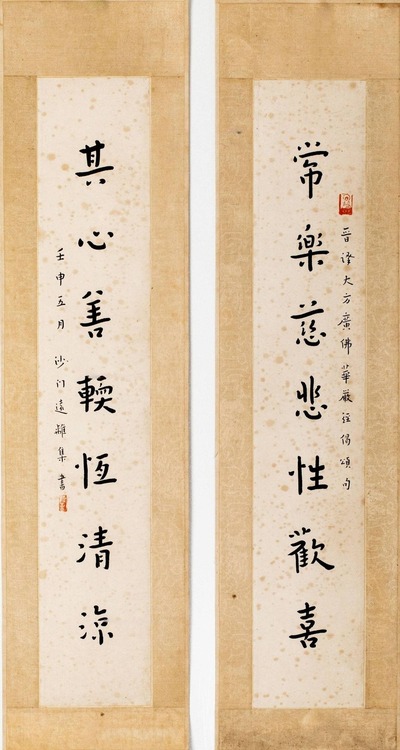 常樂慈悲性歡喜
晉譯大方廣佛華嚴經偈頌句
其心善輭恆清涼
壬申五月 沙門遠離集書